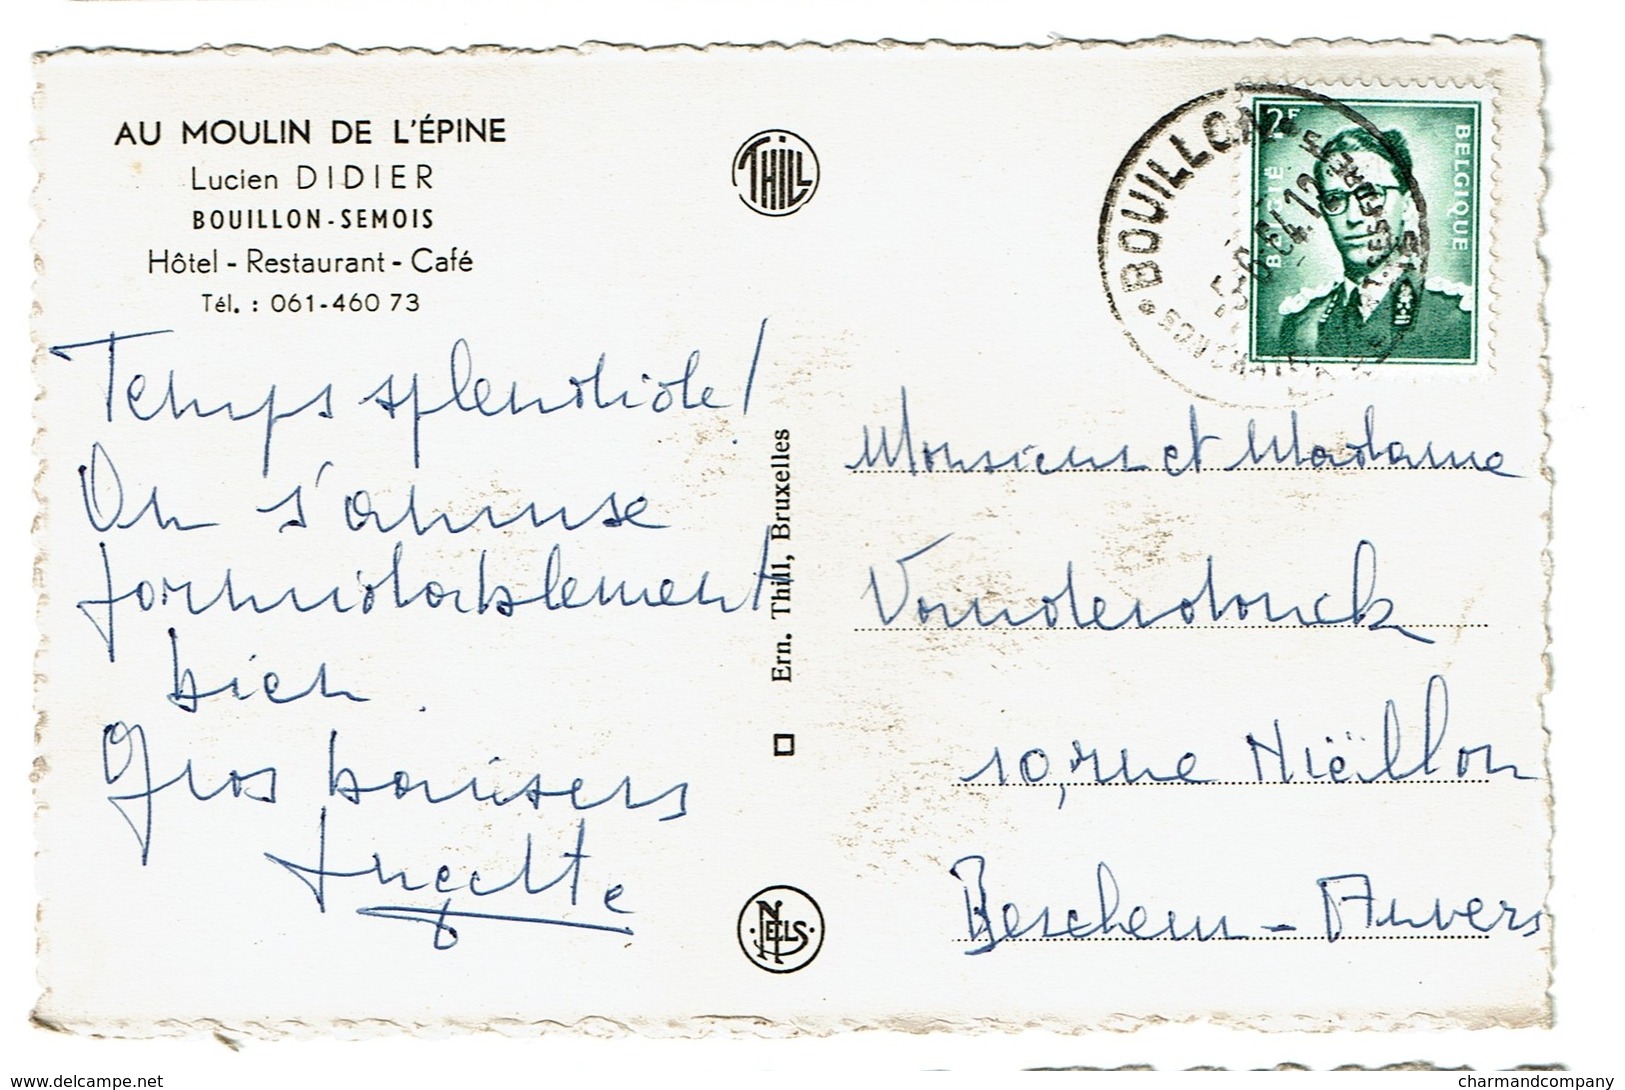 AU MOULIN DE L'ÉPINE
Lucien DIDIER
BOUILLON-SEMOIS
Hôtel - Restaurant - Café
Tél. : 061-460 73
Temps splendide!
On s'amuse
formidablement
bien.
Gros baisers
THILL
Ern. Thill, Bruxelles
NELS
BOUILLON
2F
BELGIË
BELGIQUE
Monsieur et Madame
Vanderdonck
10, rue Niëllon
Berchem - Anvers
www.delcampe.net
charmandcompany